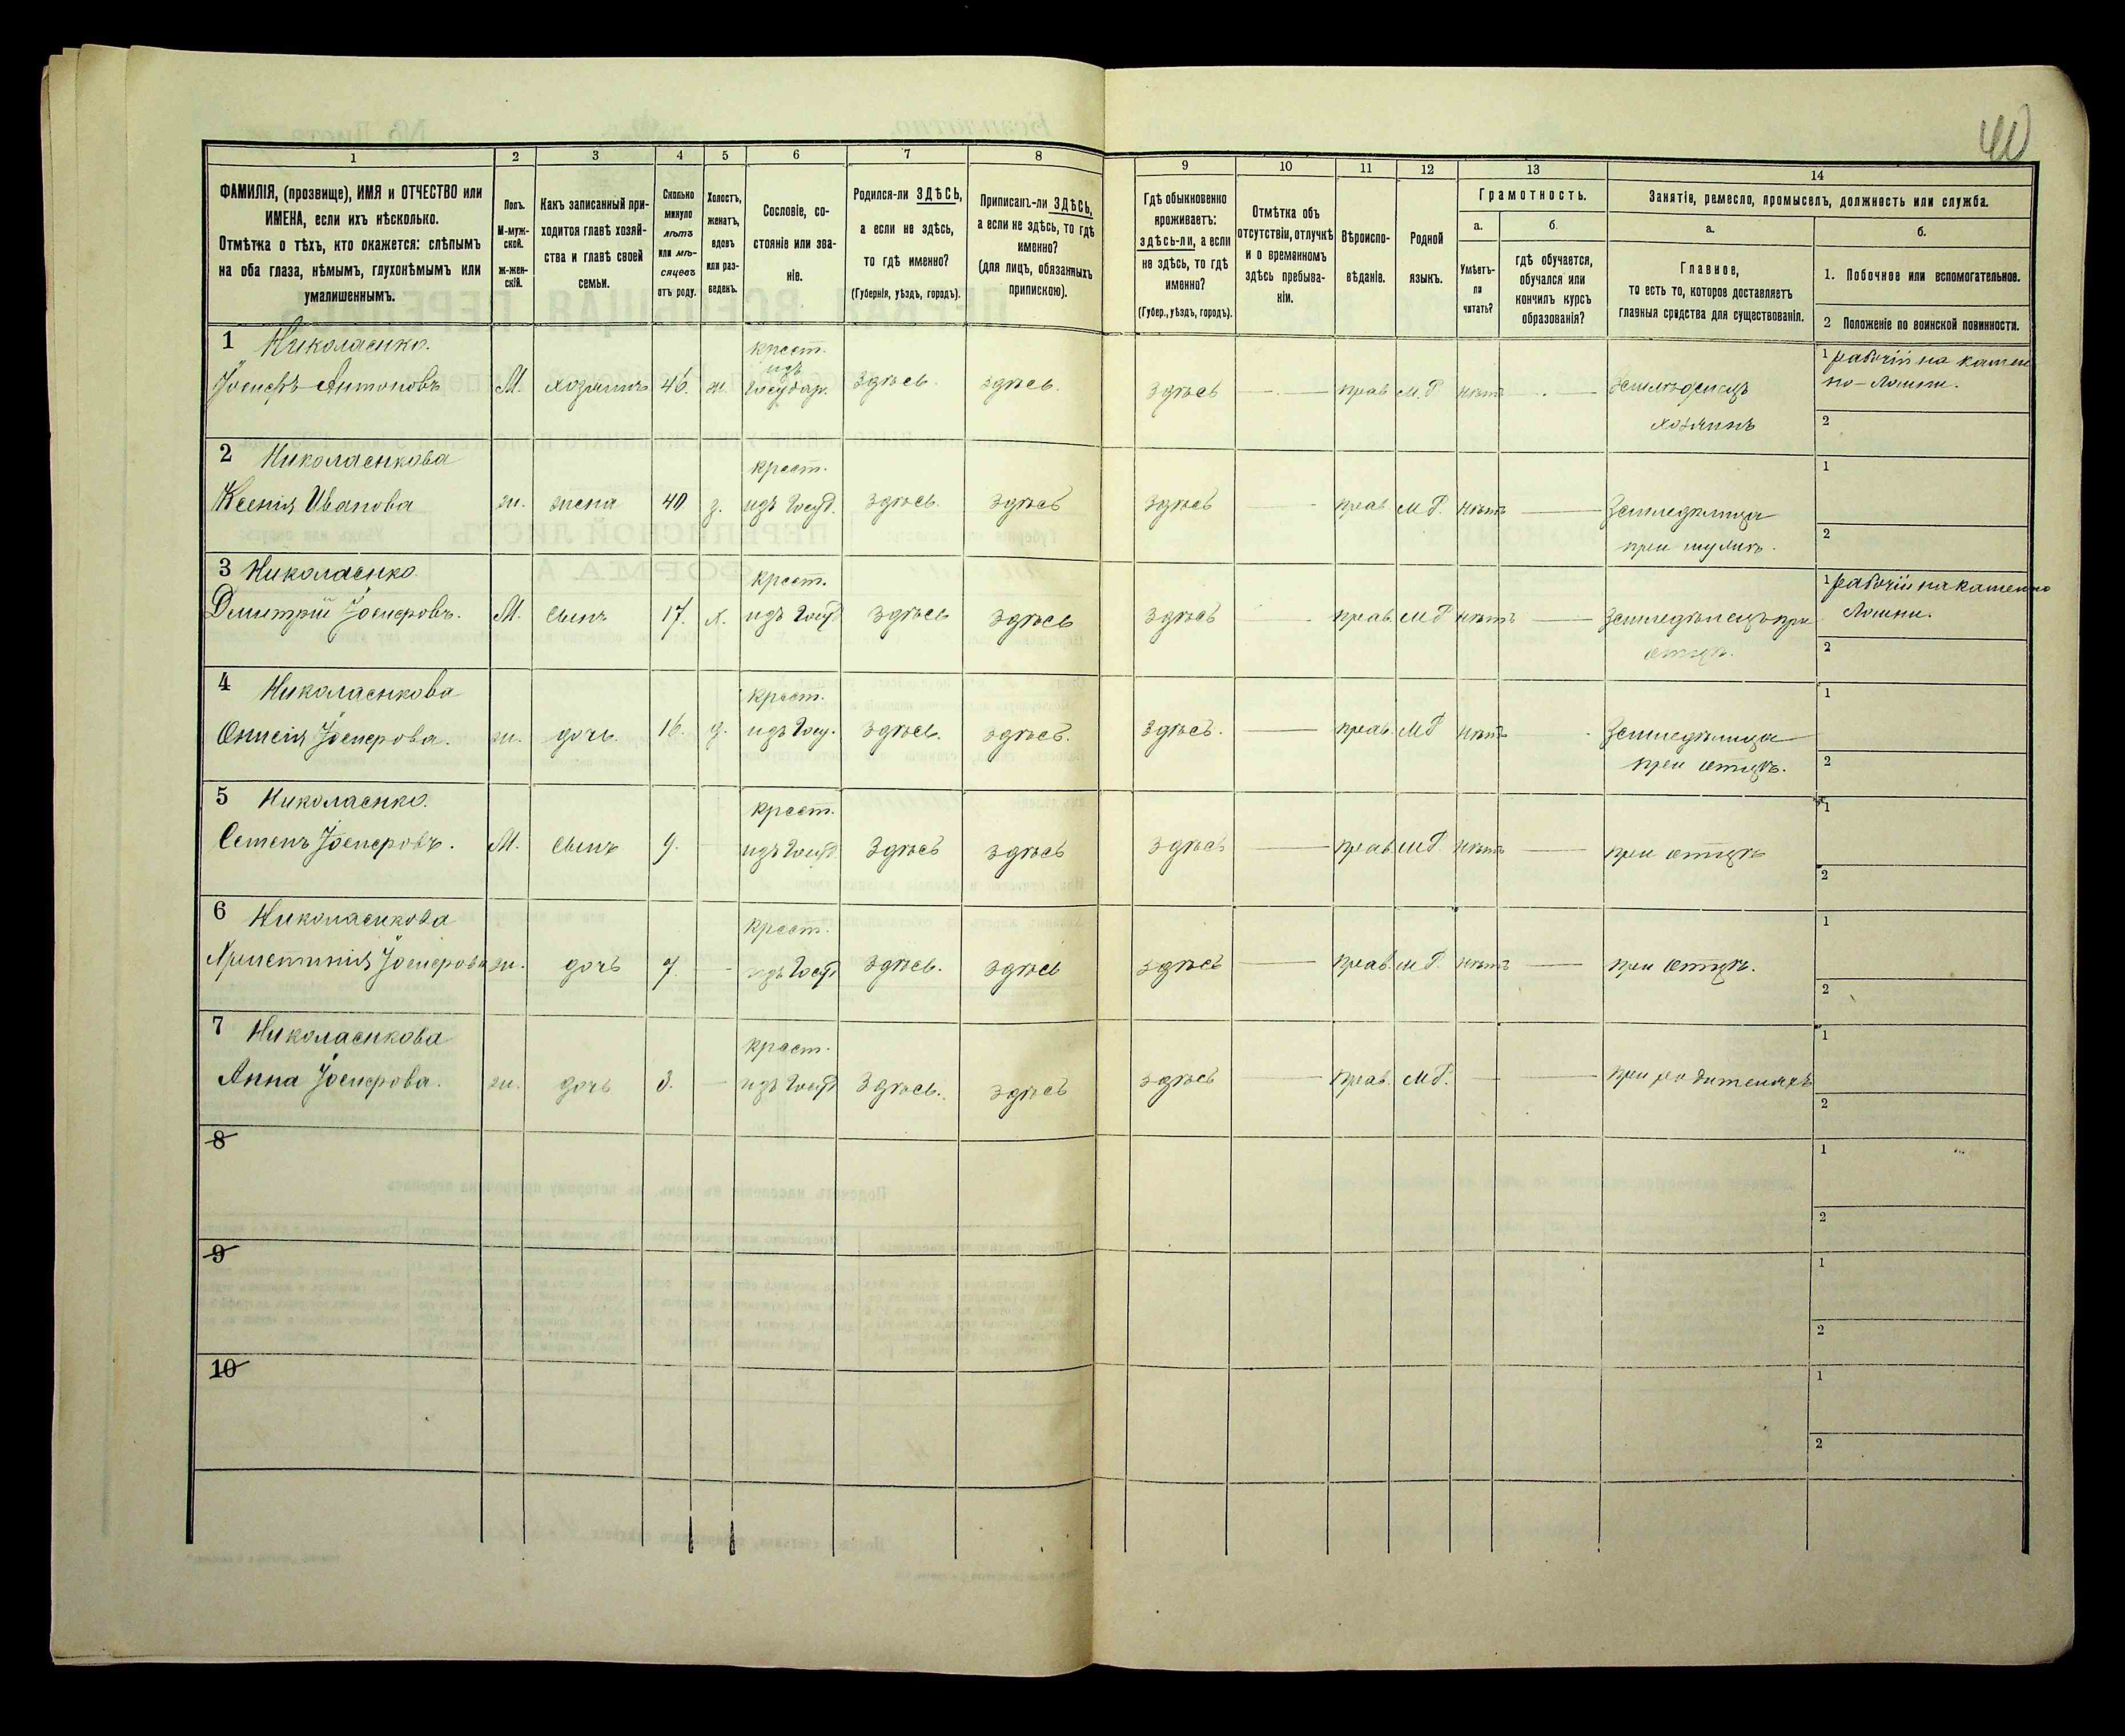 40
1 2 3 4 5 6 7 8 9 10 11 12 13 14
ФАМИЛІЯ, (прозвище), ИМЯ и ОТЧЕСТВО или
ИМЕНА, если ихъ нѣсколько.
Отмѣтка о тѣхъ, кто окажется: слѣпымъ
на оба глаза, нѣмымъ, глухонѣмымъ или
умалишеннымъ.
Полъ.
М-муж-
ской.
Ж-жен-
скій.
Какъ записанный при-
ходится главѣ хозяй-
ства и главѣ своей
семьи.
Сколько
минуло
лѣтъ
или мѣ-
сяцевъ
отъ роду.
Холостъ,
женатъ,
вдовъ
или раз-
веденъ.
Сословіе, со-
стояніе или зва-
ніе.
Родился-ли ЗДѢСЬ,
а если не здѣсь,
то гдѣ именно?
(Губернія, уѣздъ, городъ).
Приписанъ-ли ЗДѢСЬ,
а если не здѣсь, то гдѣ
именно?
(для лицъ, обязанныхъ
припискою).
Гдѣ обыкновенно
проживаетъ:
здѣсь-ли, а если
не здѣсь, то гдѣ
именно?
(Губер., уѣздъ, городъ).
Отмѣтка объ
отсутствіи, отлучкѣ
и о временномъ
здѣсь пребыва-
ніи.
Вѣроиспо-
вѣданіе.
Родной
языкъ.
Грамотность.
а.
Умѣетъ-
ли
читать?
б.
гдѣ обучается,
обучался или
кончилъ курсъ
образованія?
Занятіе, ремесло, промыселъ, должность или служба.
а.
Главное,
то есть то, которое доставляетъ
главныя средства для существованія.
б.
1. Побочное или вспомогательное.
2 Положеніе по воинской повинности.
1 Николаенко. крест. 1 рабочій на камен
изъ
Іосифъ Антоновъ М. хозяинъ 46. ж. Государ. Здѣсь. здѣсь. здѣсь — прав М.Р нѣтъ — Земледѣлецъ но-ломни.
хозяинъ 2
2 Николаенкова крест. 1
Ксенія Иванова ж. жена 40 з. изъ Госуд. здѣсь. здѣсь здѣсь — прав М Р. нѣтъ — Земледѣлица
при мужѣ. 2
3 Николаенко крест. 1 рабочій на каменно
Дмитрій Іосифовъ. М. сынъ 17. х. изъ Госуд здѣсь здѣсь здѣсь — прав. М Р нѣтъ — Земледѣлецъ при ломни.
отцѣ. 2
4 Николаенкова крест. 1
Іосифова. ж. дочь. 16. д. изъ Госу. здѣсь. здѣсь. здѣсь. — прав. М Р нѣтъ Земледѣлица
при отцѣ. 2
5 Николаенко. крест. 1
Семенъ Іосифовъ. М. сынъ 9. изъ Госуд. Здѣсь здѣсь здѣсь — прав М Р. нѣтъ — при отцѣ
2
6 Николаенкова крест. 1
Христинія Іосифова ж. дочь 7. — изъ Госуд здѣсь. здѣсь здѣсь — прав. М Р. нѣтъ — при отцѣ.
2
7 Николаенкова крест. 1
Анна Іосифова. ж. дочь 3. — изъ Госуд Здѣсь. здѣсь здѣсь — прав. М Р. — — при родителяхъ
2
8 1
2
9 1
2
10 1
2